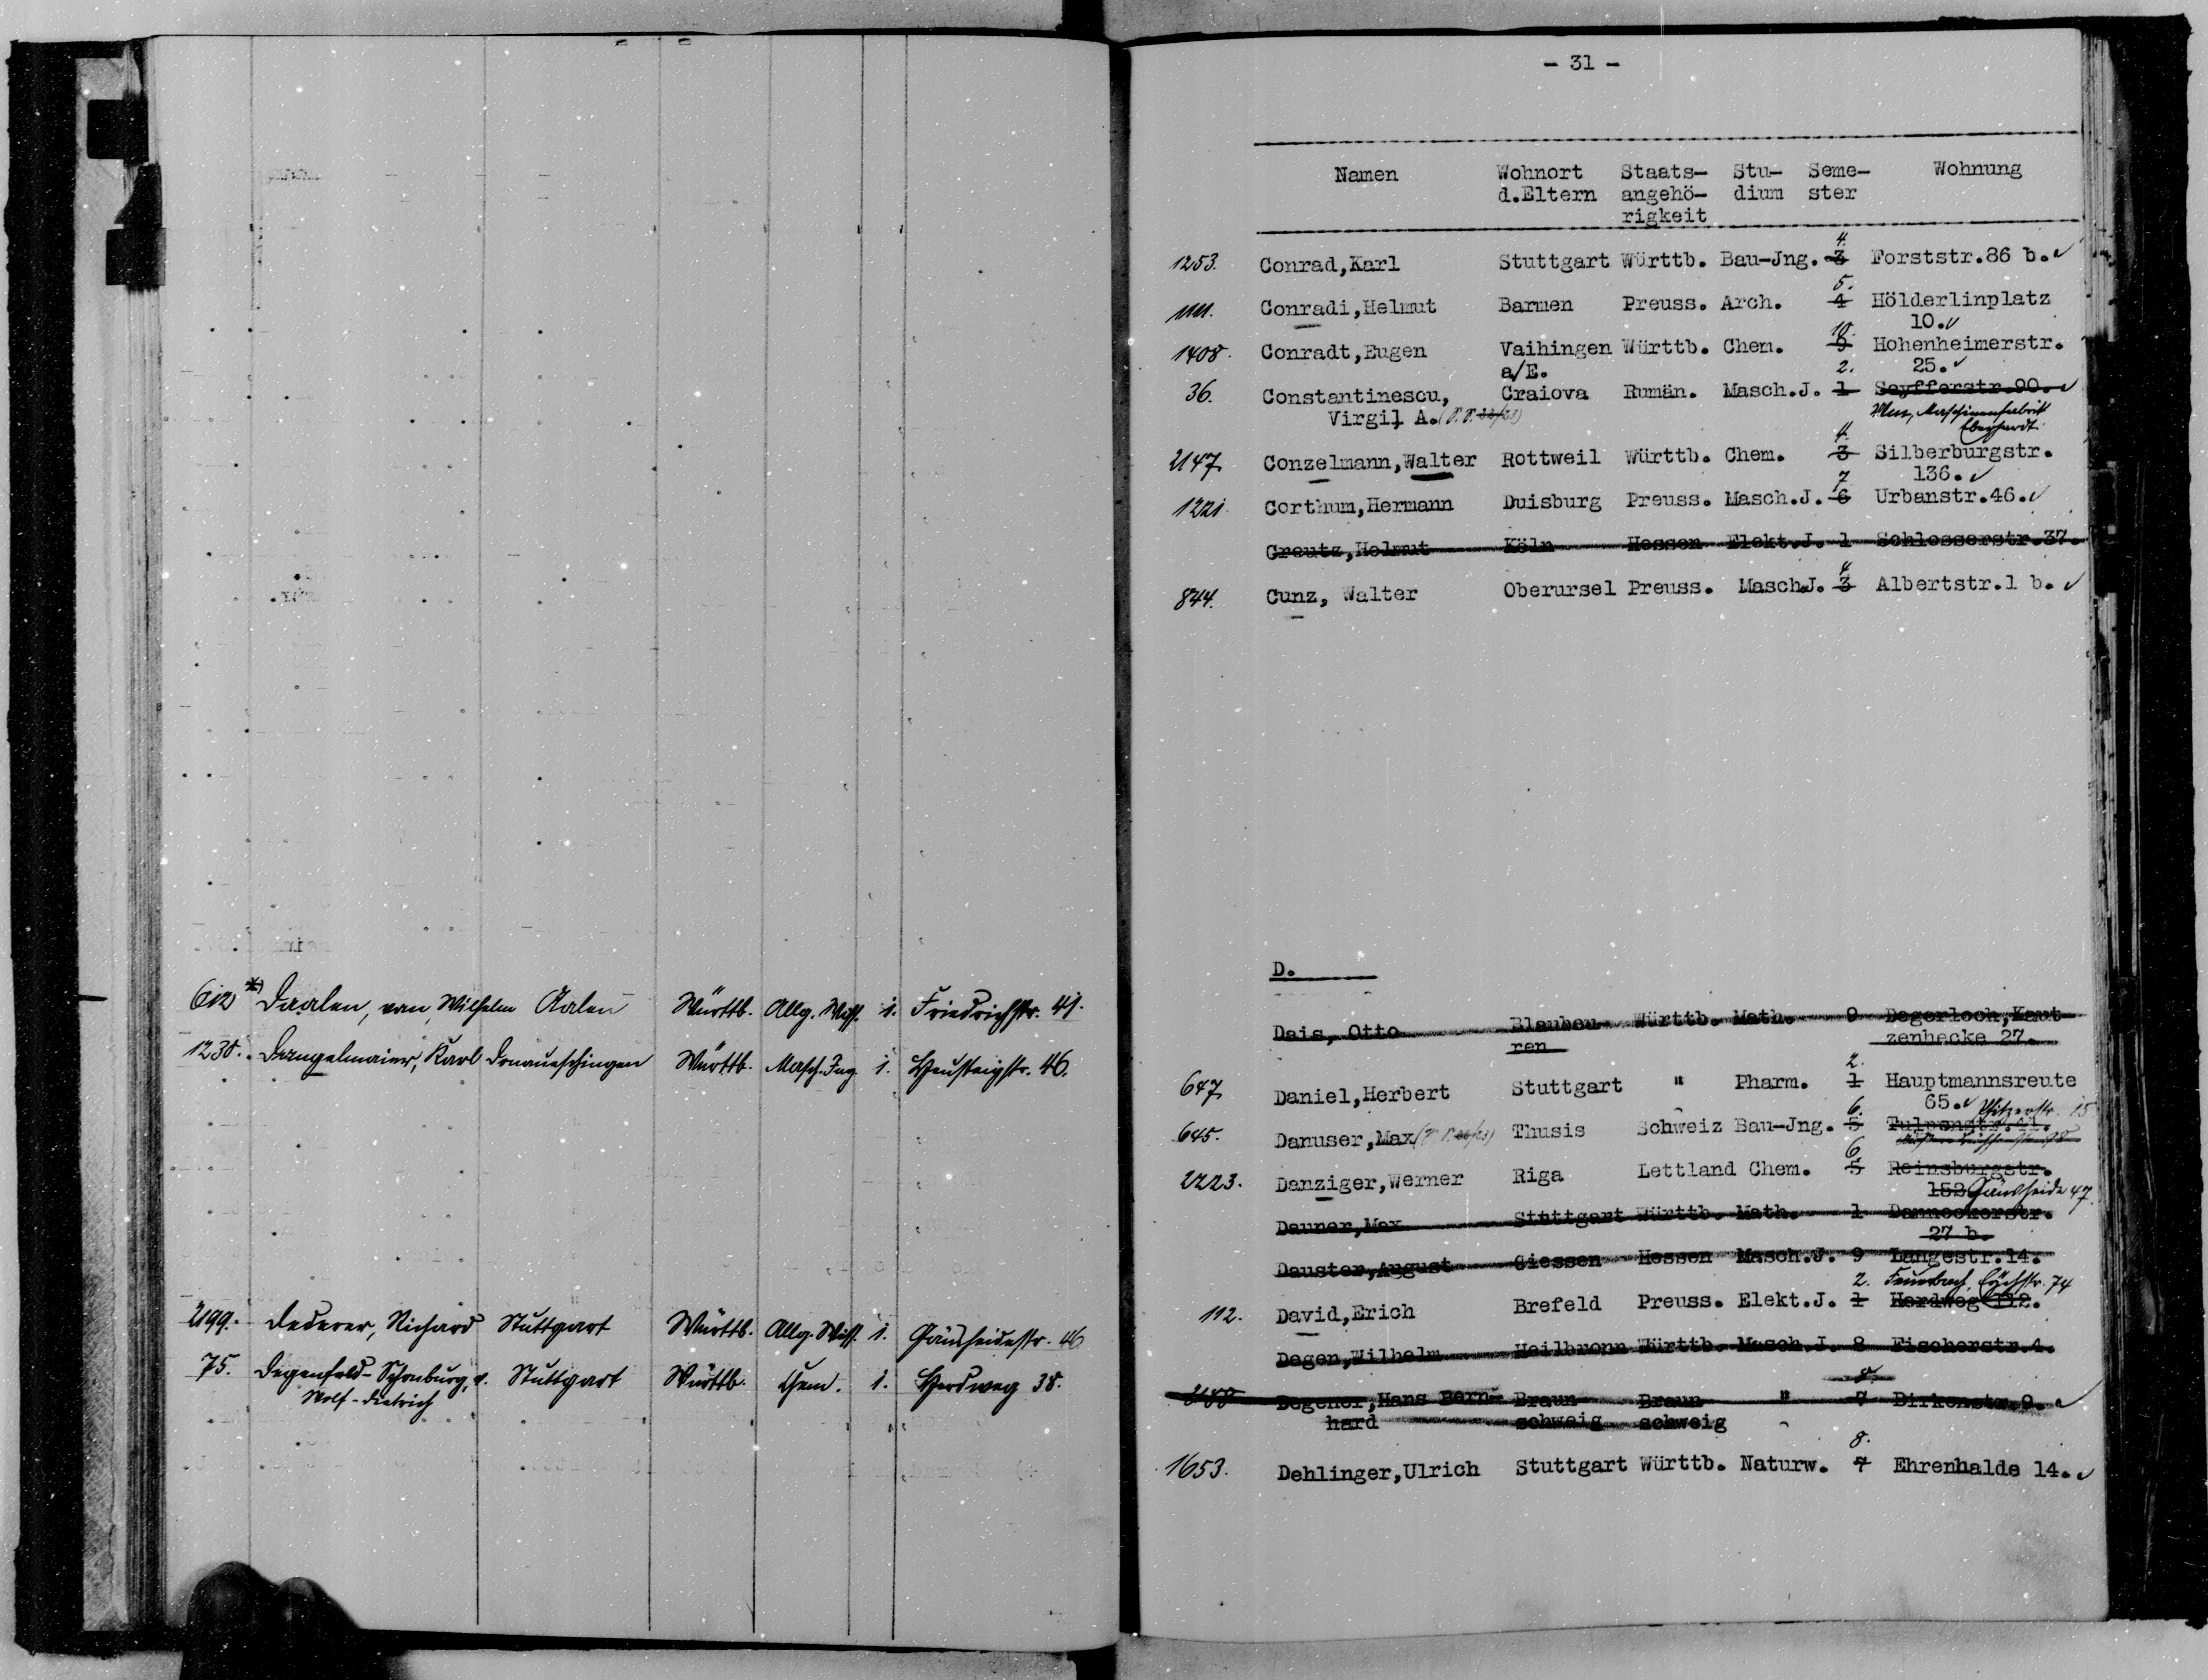 612 *) Daalen, van, Wilhelm Aalen Württb. Allg. Wiss. 1. Friedrichstr. 41.
1238. Dangelmaier, Karl Donaueschingen Württb. Masch. Ing. 1. Heusteigstr. 46.
2199. Dederer, Richard Stuttgart Württb. Allg. Wiss. 1. Gänsheidestr. 46
75. Degenfeld-Schonburg, v. Stuttgart Württb. Chem. 1. Herdweg 38.
Wolf-Dietrich
- 31 -
Namen Wohnort Staats- Stu- Seme- Wohnung
d.Eltern angehö- dium ster
rigkeit
4.
1253. Conrad,Karl Stuttgart Württb. Bau-Jng. 3 Forststr.86 b.
5.
1111. Conradi,Helmut Barmen Preuss. Arch. 4 Hölderlinplatz
10. 10.
1408. Conradt,Eugen Vaihingen Württb. Chem. Hohenheimerstr.
a/E. 2. 25.
36. Constantinescu, Craiova Rumän. Masch.J. 1 Seyfferstr.90.
Virgil A. Ulm, Maschinenfabrik
4. Eberhardt.
2147. Conzelmann,Walter Rottweil Württb. Chem. 3 Silberburgstr.
7 136.
1221 Corthum,Hermann Duisburg Preuss. Masch.J. 6 Urbanstr.46.
Creutz,Helmut Köln Hessen Elekt.J. 1 Schlosserstr.37.
4
844. Cunz, Walter Oberursel Preuss. Masch.J. 3 Albertstr.1 b.
D.
Dais, Otto Blaubeu- Württb. Math. 9 Degerloch,Kaut-
ren zenhecke 27.
2.
647 Daniel,Herbert Stuttgart " Pharm. 1 Hauptmannsreute
6. 65. 15
645. Danuser,Max Thusis Schweiz Bau-Jng. 5 Tulpenstr.41.
6.
2223. Danziger,Werner Riga Lettland Chem. 5 Reinsburgstr.
152 Gänsheide 47.
Dauner,Max Stuttgart Württb. Math. 1 Danneckerstr.
27 b.
Dauster,August Giessen Hessen Masch.J. 9 Langestr.14.
2. Feuerbach, 74
112. David,Erich Brefeld Preuss. Elekt.J. 1 Herdweg 112.
Degen,Wilhelm Heilbronn Württb. Masch.J. 8 Fischerstr.4.
8.
2188 Degener,Hans Bern- Braun- Braun- " 7 Birkenstr.9.
hard schweig schweig
8.
1653. Dehlinger,Ulrich Stuttgart Württb. Naturw. 7 Ehrenhalde 14.